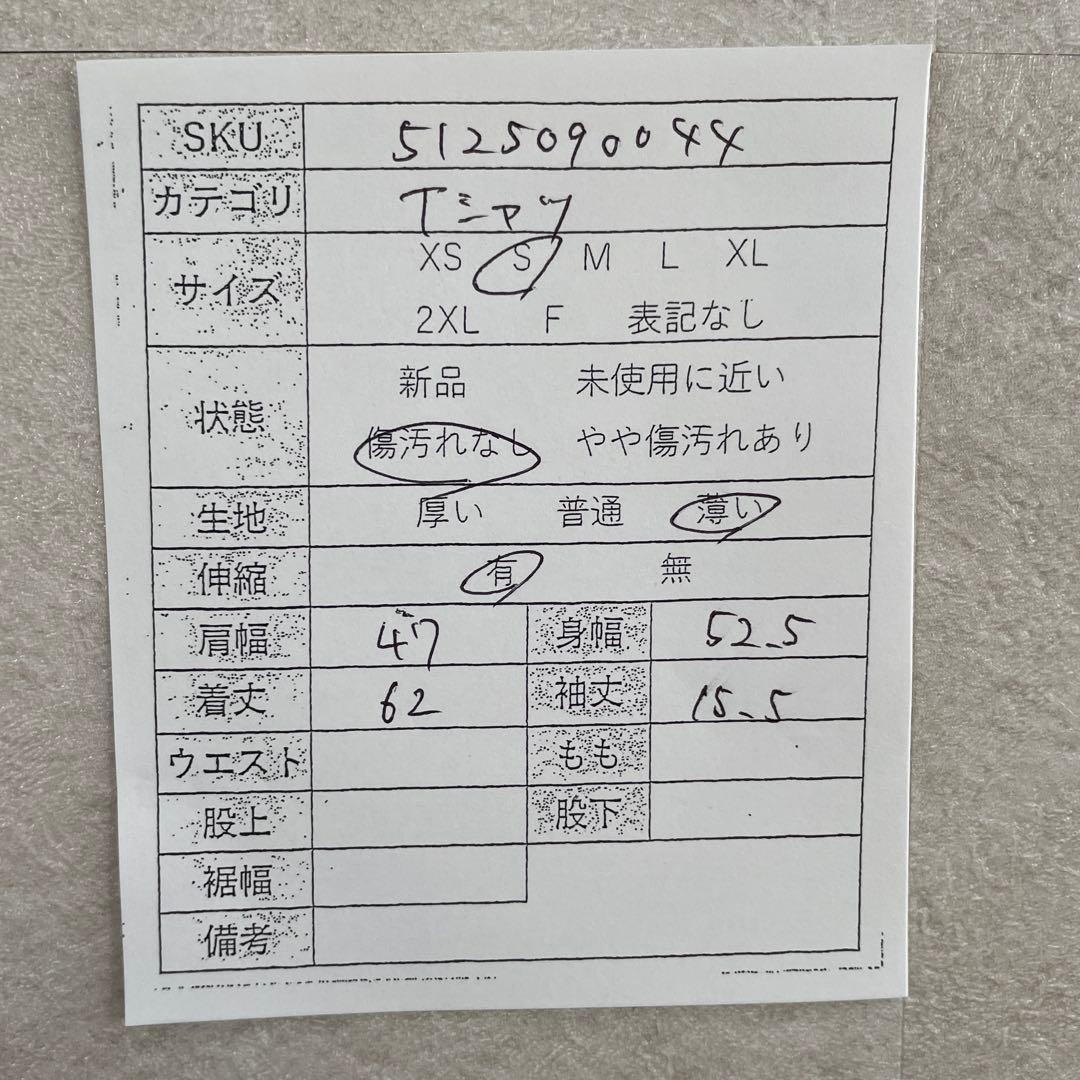 SKU 5125090044
カテゴリ Tシャツ
サイズ XS S M L XL
2XL F 表記なし
状態 新品 未使用に近い
傷汚れなし やや傷汚れあり
生地 厚い 普通 薄い
伸縮 有 無
肩幅 47 身幅 52.5
着丈 62 袖丈 15.5
ウエスト もも
股上 股下
裾幅
備考